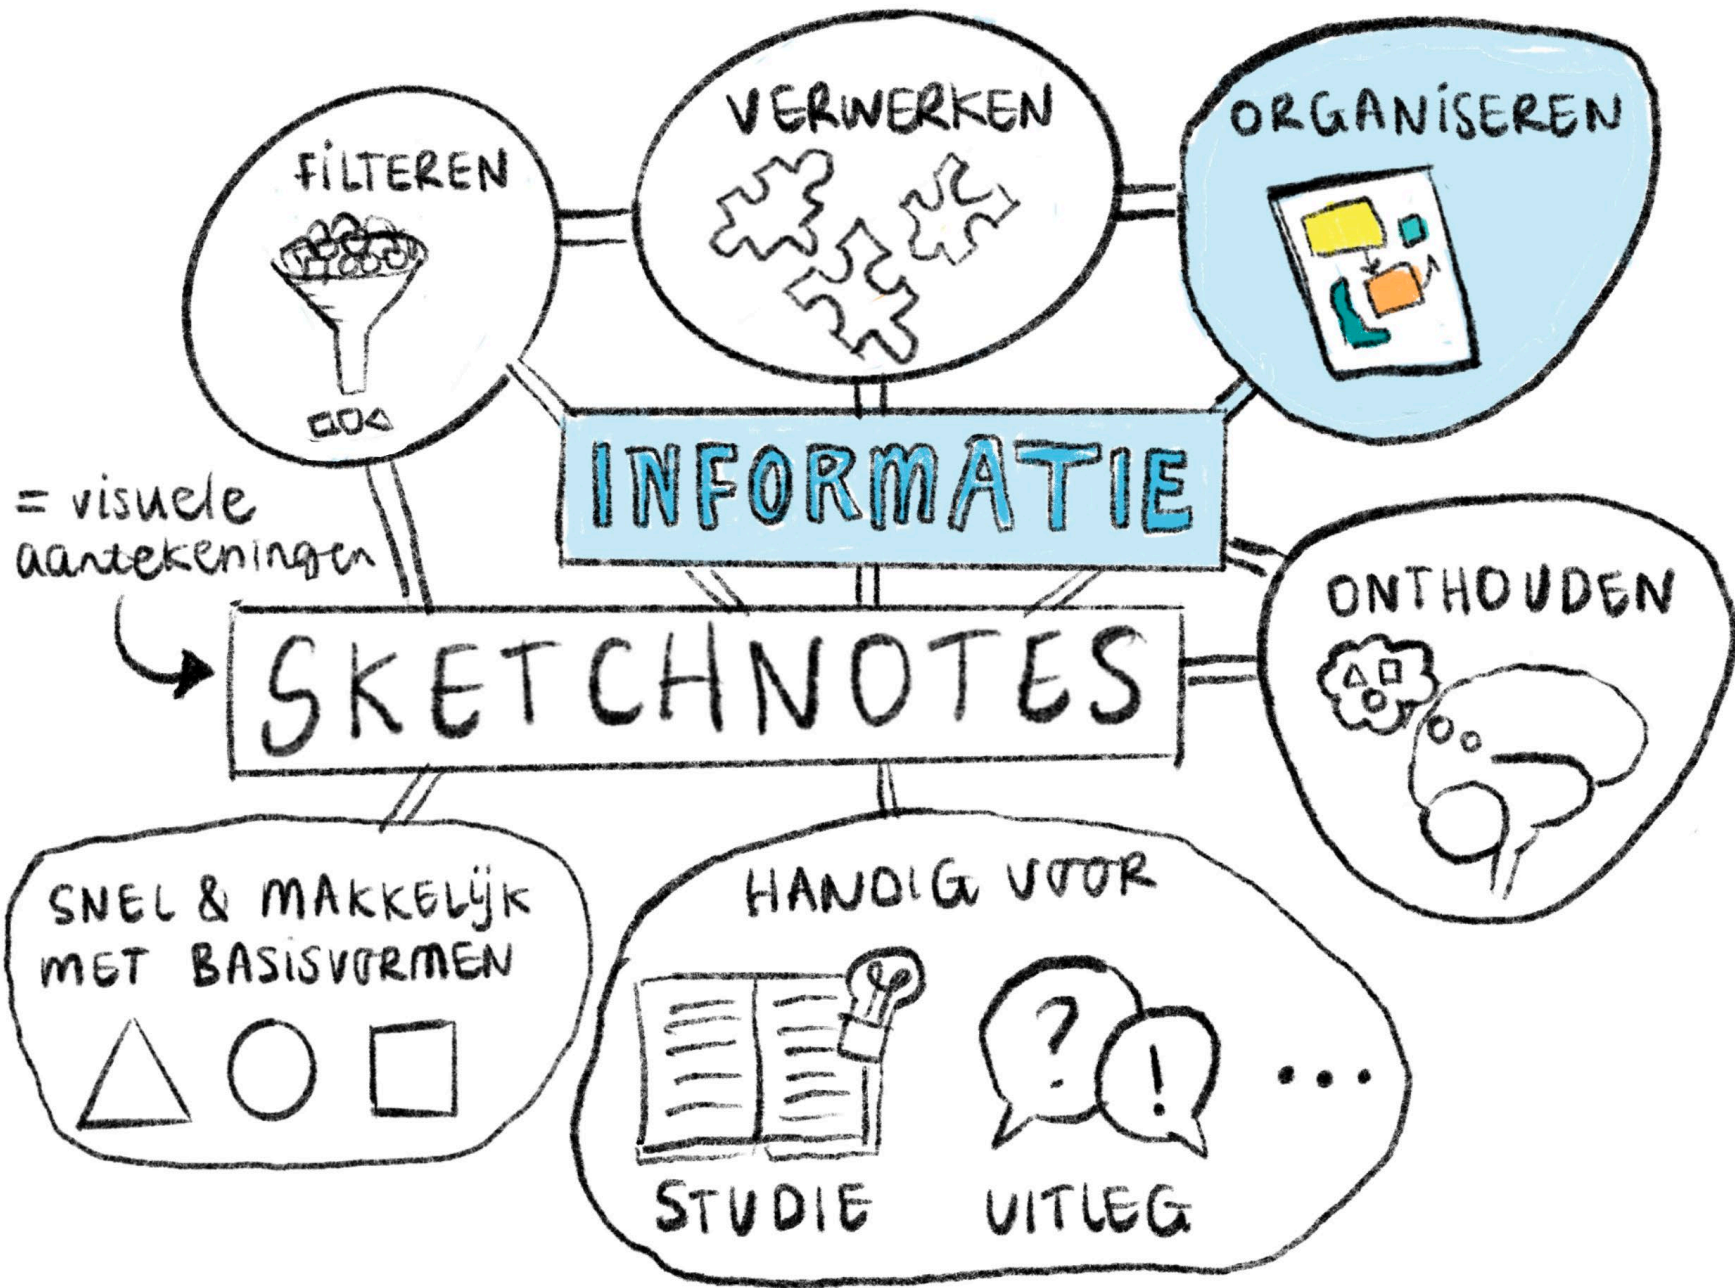 FILTEREN
VERWERKEN
ORGANISEREN
INFORMATIE
= visuele
aantekeningen
SKETCHNOTES
ONTHOUDEN
SNEL & MAKKELIJK
MET BASISVORMEN
HANDIG VOOR
? !
...
STUDIE
UITLEG